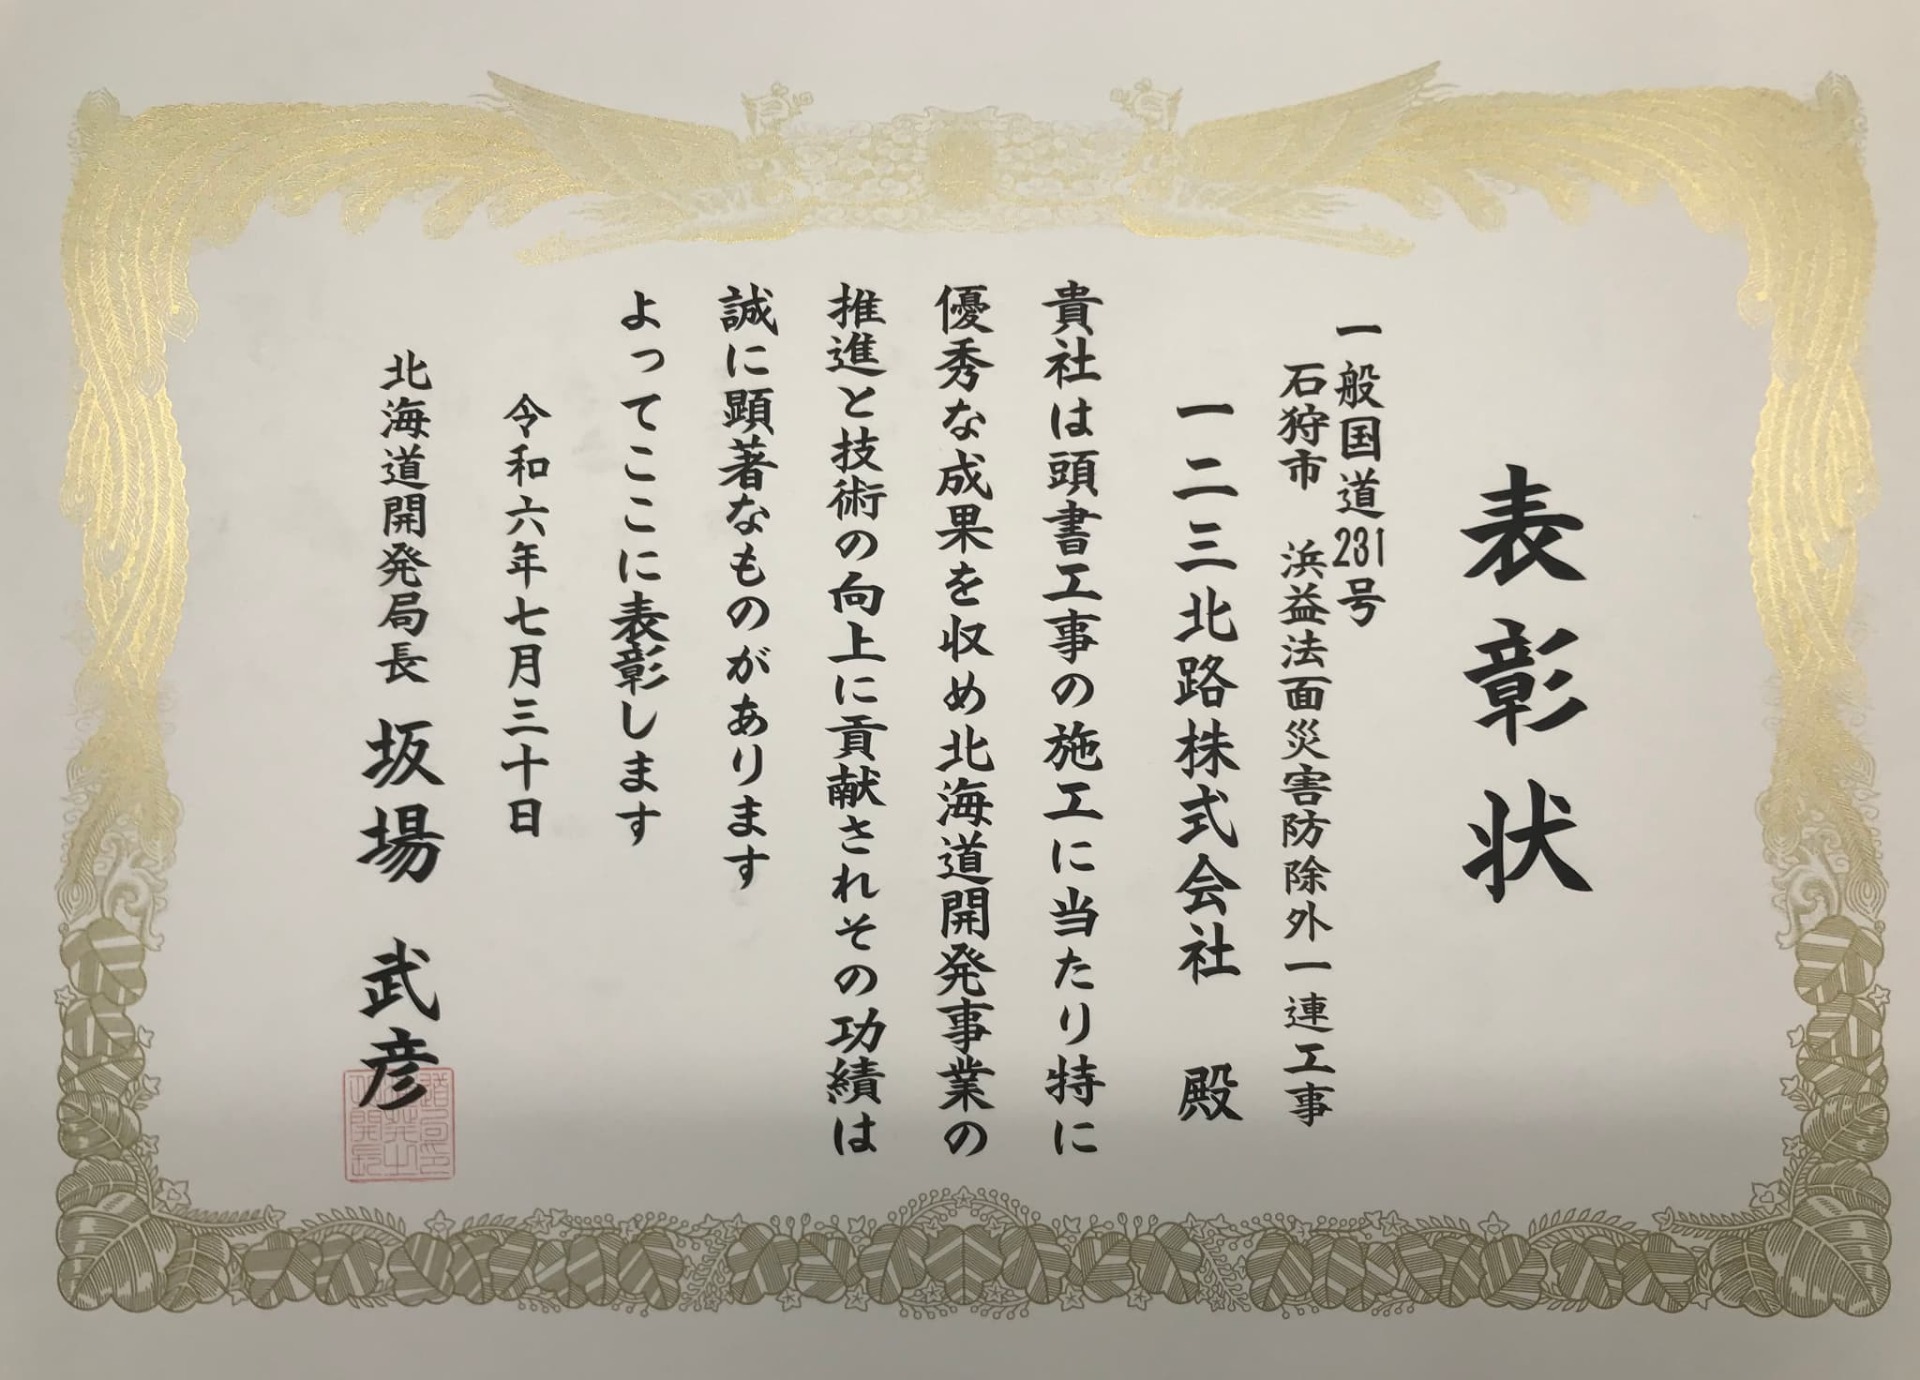 表彰状
一般国道231号
石狩市　浜益法面災害防除外一連工事
一二三北路株式会社　殿
貴社は頭書工事の施工に当たり特に
優秀な成果を収め北海道開発事業の
推進と技術の向上に貢献されその功績は
誠に顕著なものがあります
よってここに表彰します
令和六年七月三十日
北海道開発局長　坂場　武彦